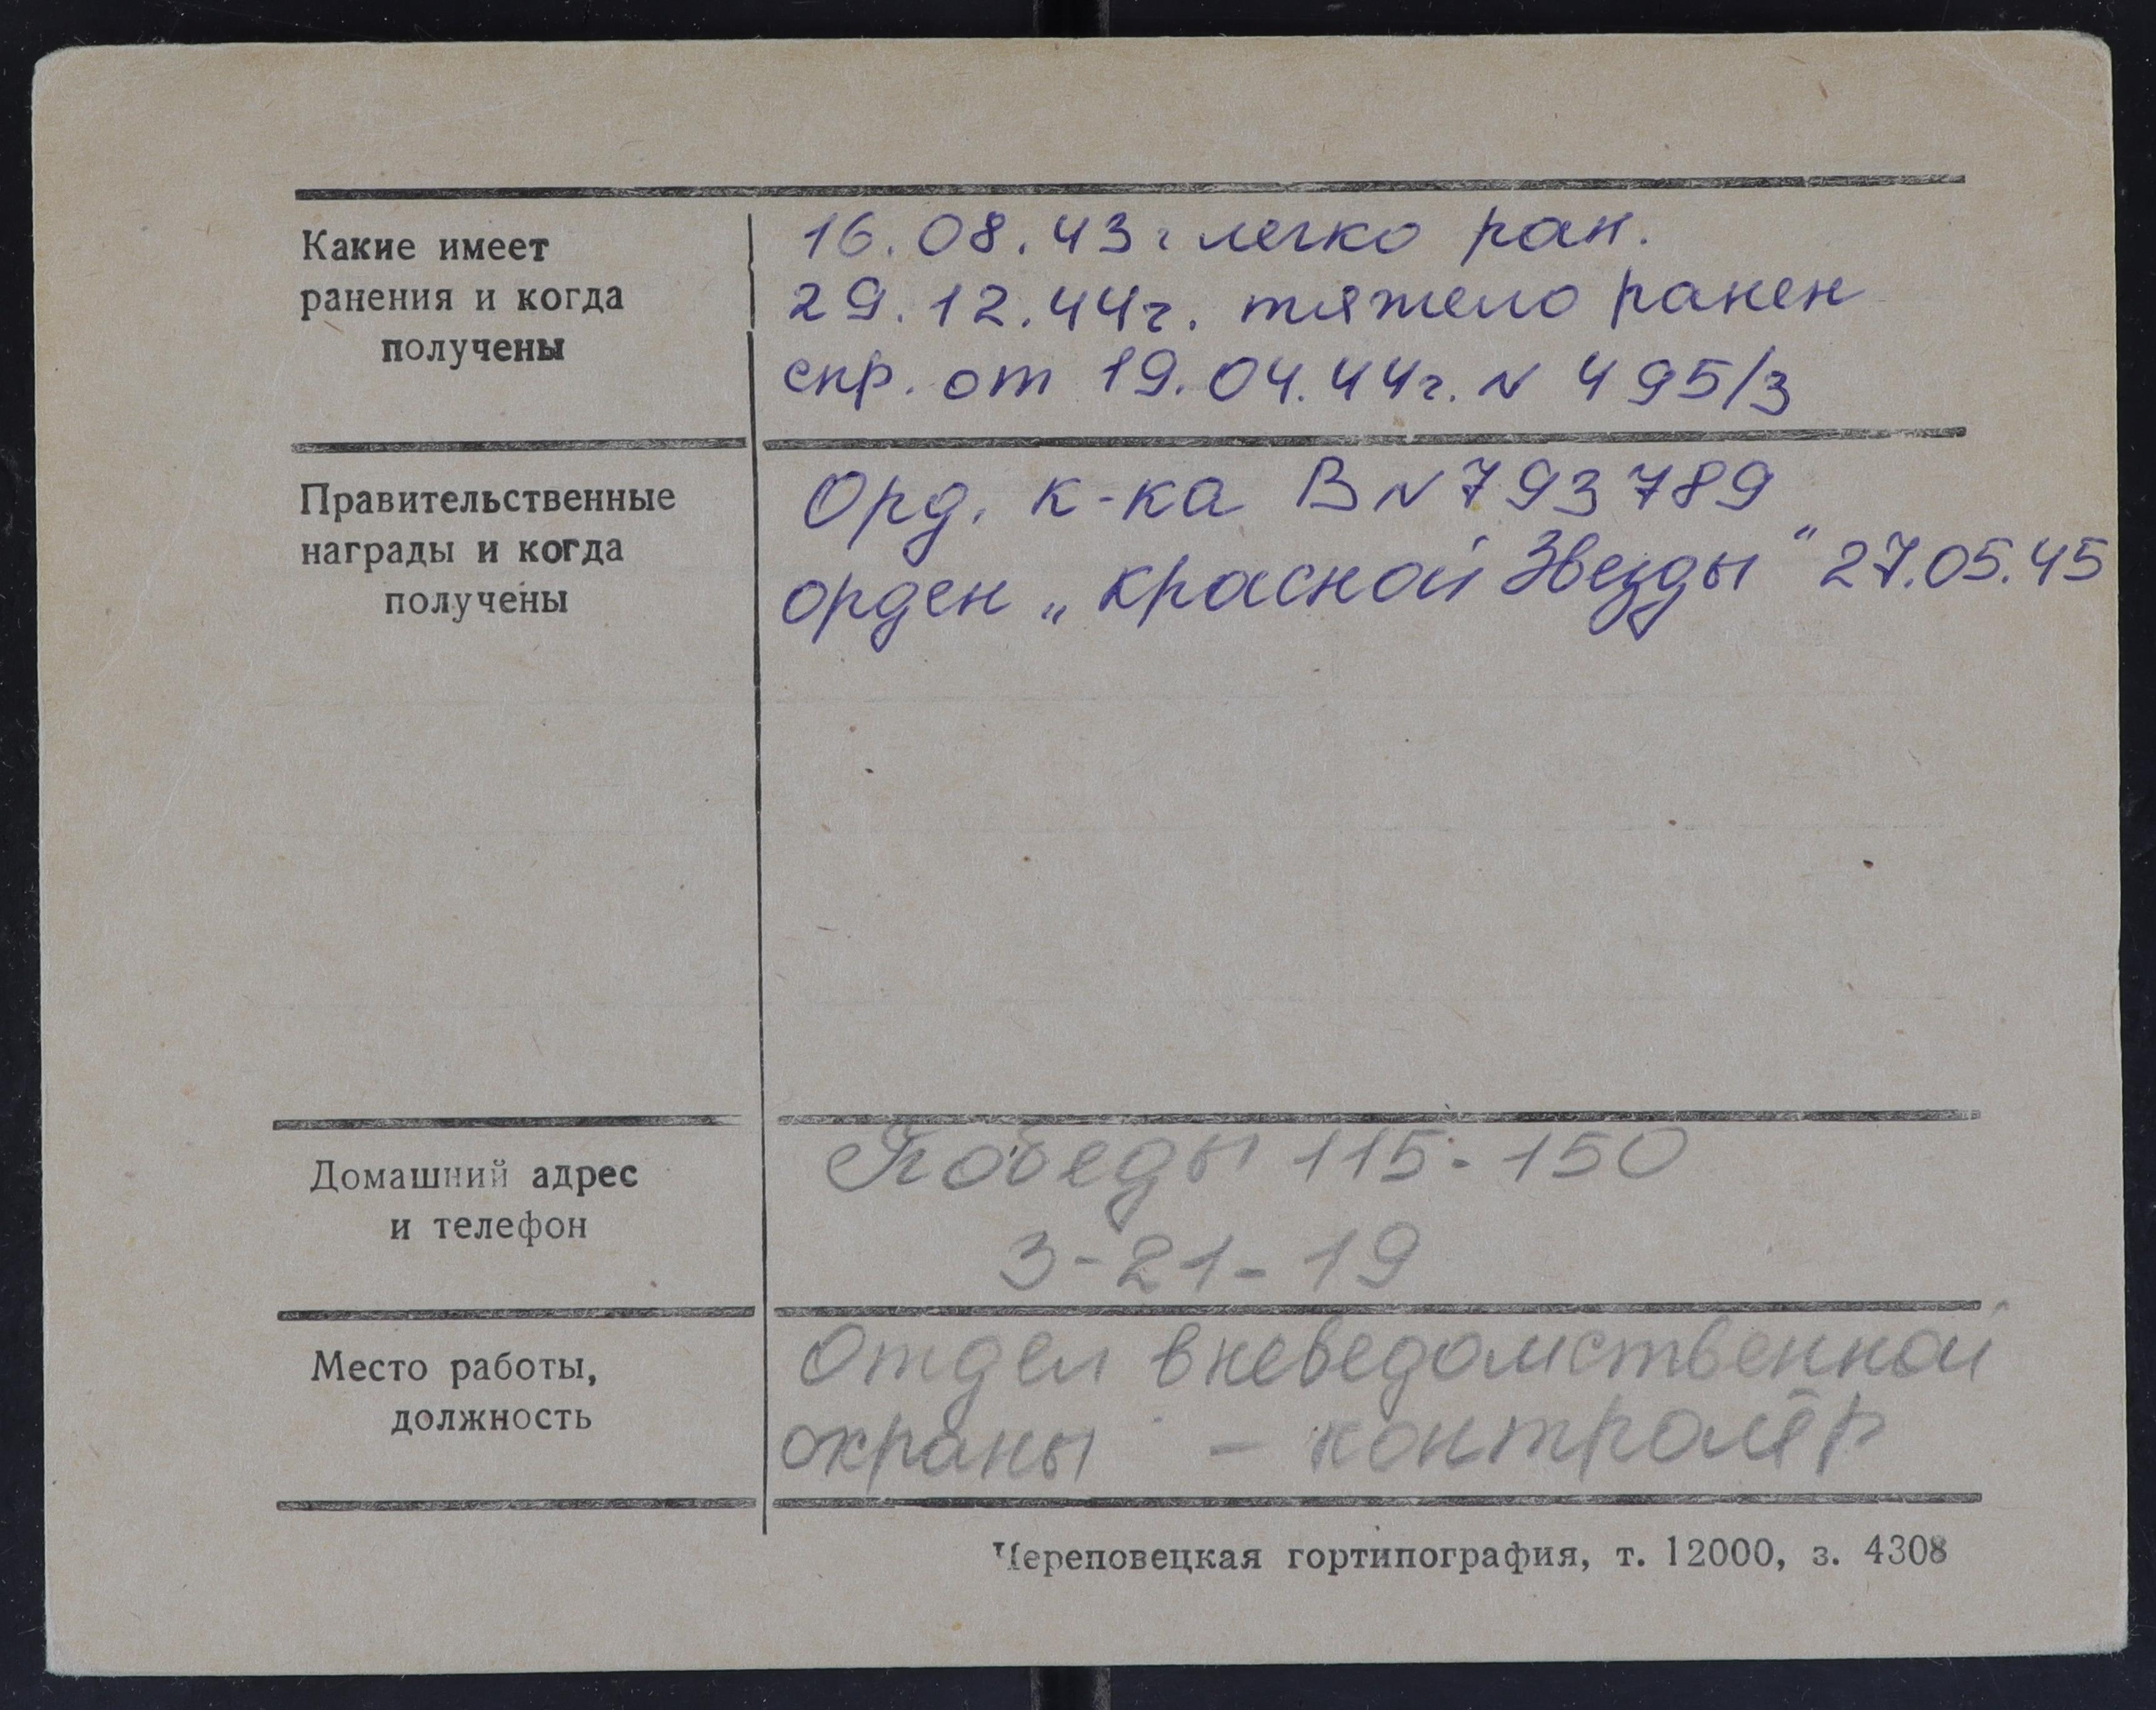 Какие имеет
ранения и когда
получены
16.08.43 г легко ран.
29.12.44г. тяжело ранен
спр. от 19.04.44г. N 495/3
Правительственные
награды и когда
получены
Орд. к-ка В N 793789
орден „Красной Звезды" 27.05.45
Домашний адрес
и телефон
Победы 115-150
3-21-19
Место работы,
должность
Отдел вневедомственной
охраны - контролёр
Череповецкая гортипография, т. 12000, з. 4308